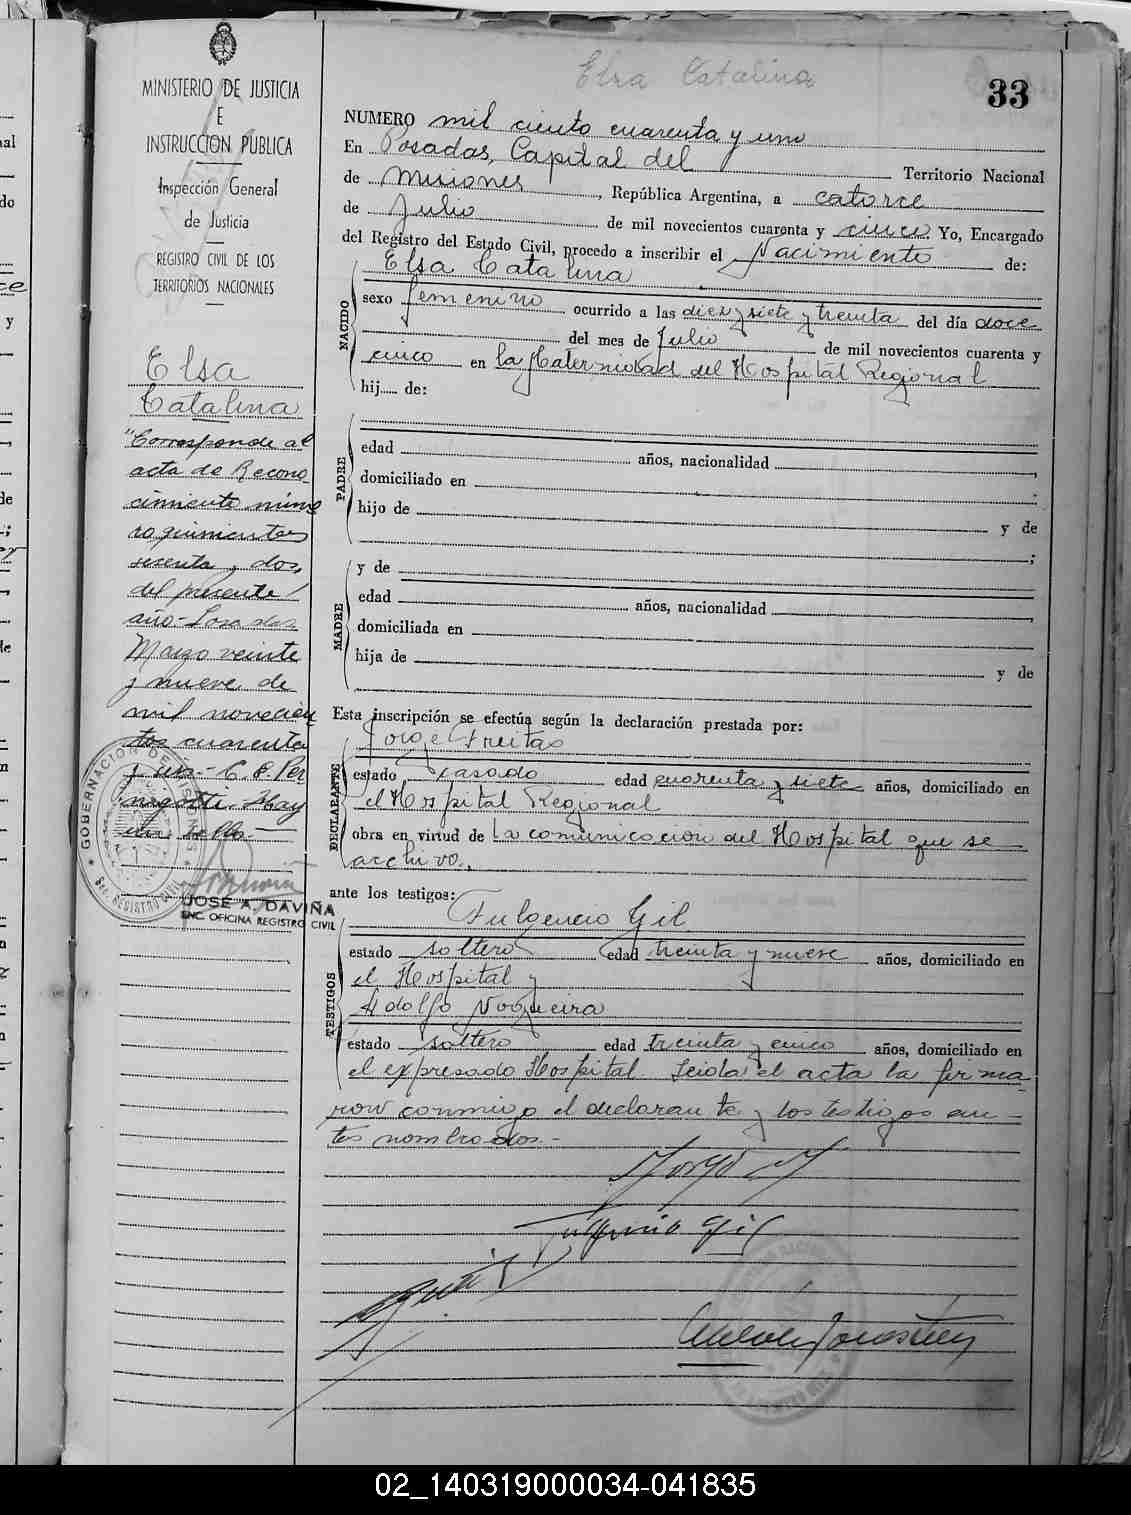 Elsa Catalina
33
MINISTERIO DE JUSTICIA
E
INSTRUCCION PUBLICA
Inspección General
de Justicia
REGISTRO CIVIL DE LOS
TERRITORIOS NACIONALES
Elsa
Catalina
"Corresponde al
acta de Recono
cimiento núme
ro quinientos
sesenta y dos,
del presente
año- Posadas
Marzo veinte
y nueve de
mil novecien
tos cuarenta
y C. E. Per
Hay
un sello.-
GOBERNACION DE MISIONES
REGISTRO CIVIL
JOSE A. DAVIÑA
ENC. OFICINA REGISTRO CIVIL
NUMERO mil ciento cuarenta y uno
En Posadas, Capital del Territorio Nacional
de Misiones, República Argentina, a catorce
de Julio de mil novecientos cuarenta y cinco. Yo, Encargado
del Registro del Estado Civil, procedo a inscribir el Nacimiento de:
NACIDO
Elsa Catalina
sexo femenino ocurrido a las diez y siete y treinta del día doce
del mes de Julio de mil novecientos cuarenta y
cinco en la Maternidad del Hospital Regional
hij...... de:
PADRE
edad años, nacionalidad
domiciliado en
hijo de y de
;
MADRE
y de
edad años, nacionalidad
domiciliada en
hija de y de
Esta inscripción se efectúa según la declaración prestada por:
DECLARANTE
Jorge Freitas
estado casado edad cuarenta y siete años, domiciliado en
el Hospital Regional
obra en virtud de la comunicación del Hospital que se
archivo.,
ante los testigos:
TESTIGOS
Fulgencio Gil
estado soltero edad treinta y nueve años, domiciliado en
el Hospital y
Adolfo Nogueira
estado soltero edad treinta y cinco años, domiciliado en
el expresado Hospital. Leida el acta la firma
ron conmigo el declarante y los testigos an-
tes nombrados.-
Jorge
Fulgencio Gil
02_140319000034-041835